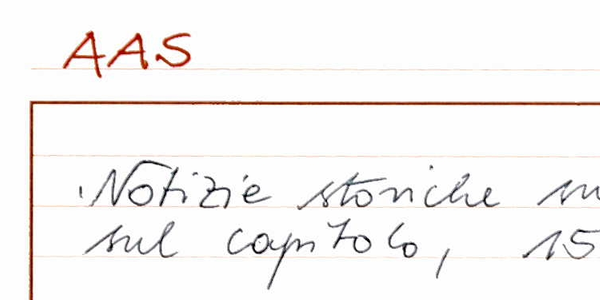 AAS
Notizie storiche su
sul capitolo, 15